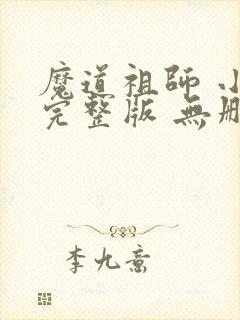 魔道祖師 小
完整版 無刪
李九意